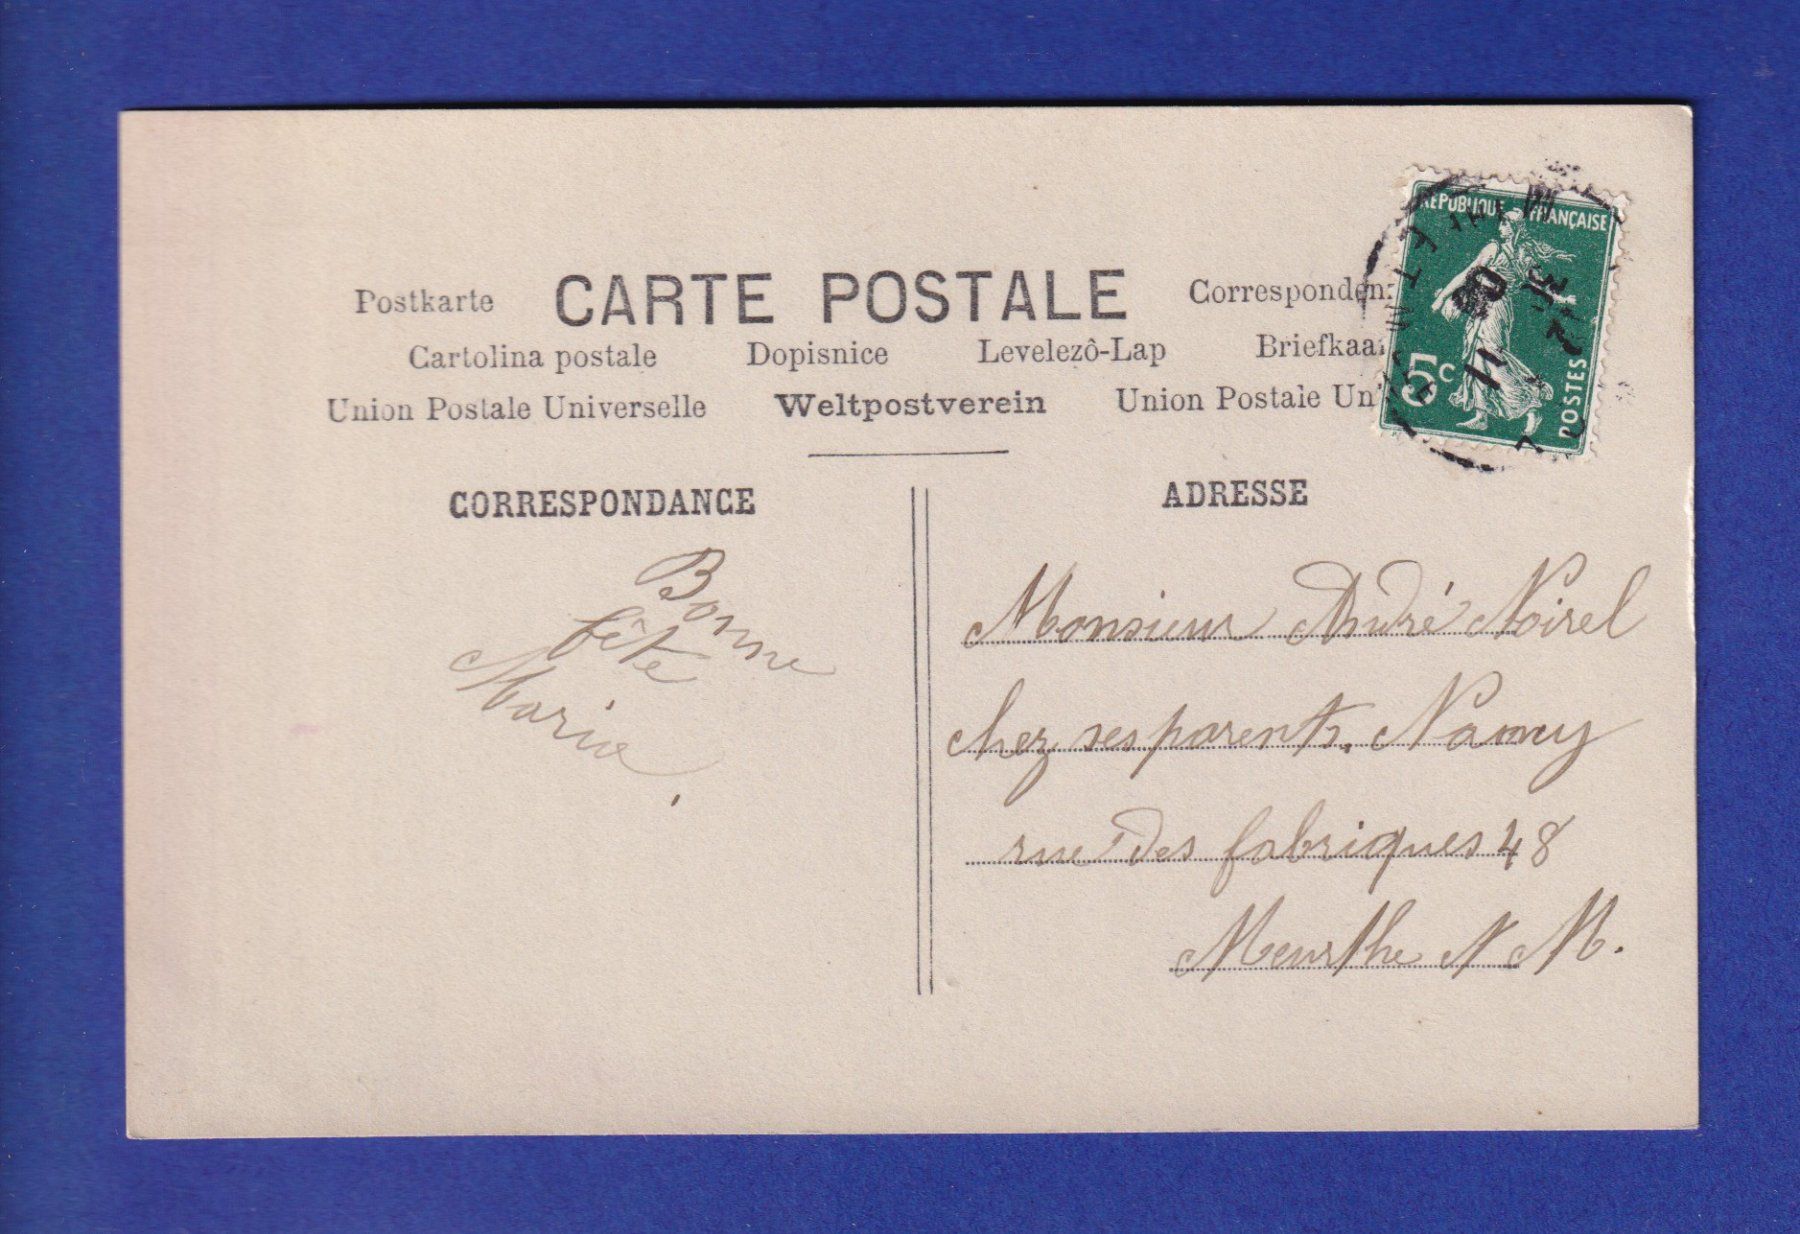 CARTE POSTALE
Postkarte
Cartolina postale Dopisnice Levelezô-Lap
Union Postale Universelle Weltpostverein Union Postale
REPUBLIQUE FRANÇAISE
5c
POSTES
CORRESPONDANCE
Bonne
fête
Maria
ADRESSE
Monsieur André Noirel
chez ses parents. Nancy
rue des fabriques 48
Meurthe M.